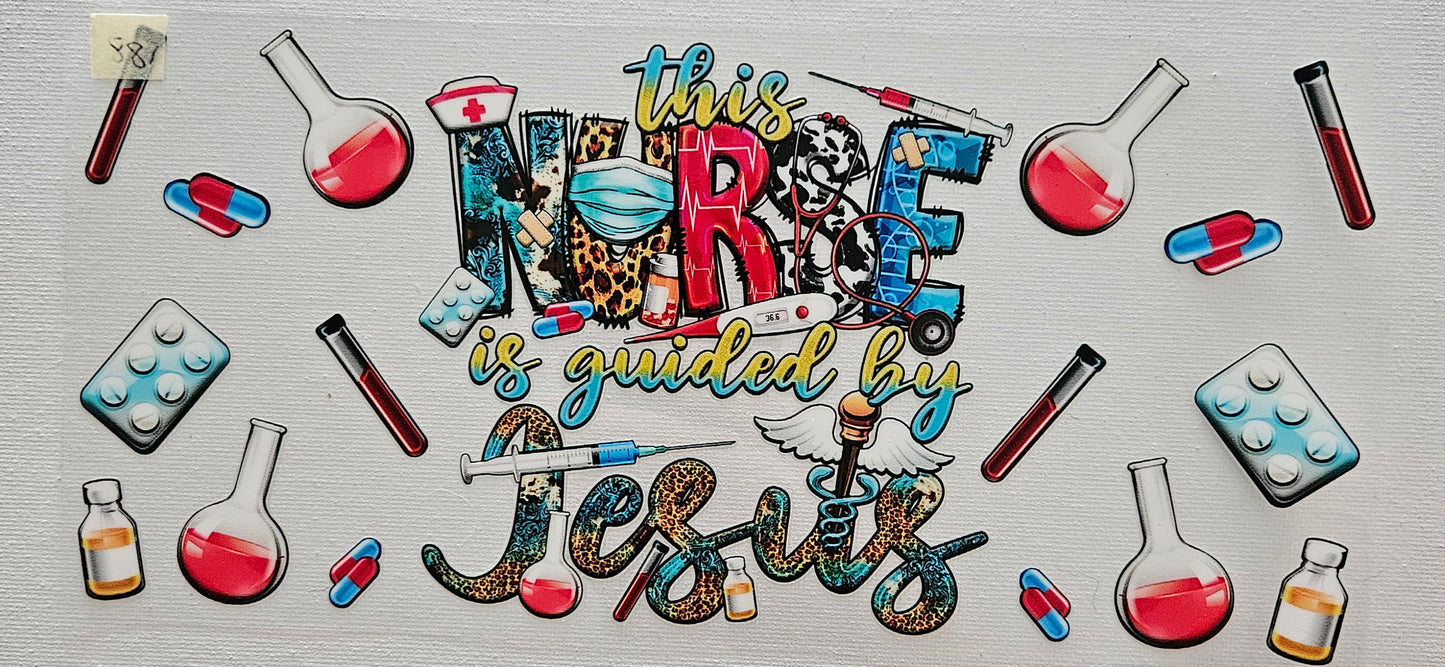 this
NURSE
36.6
is guided by
Jesus